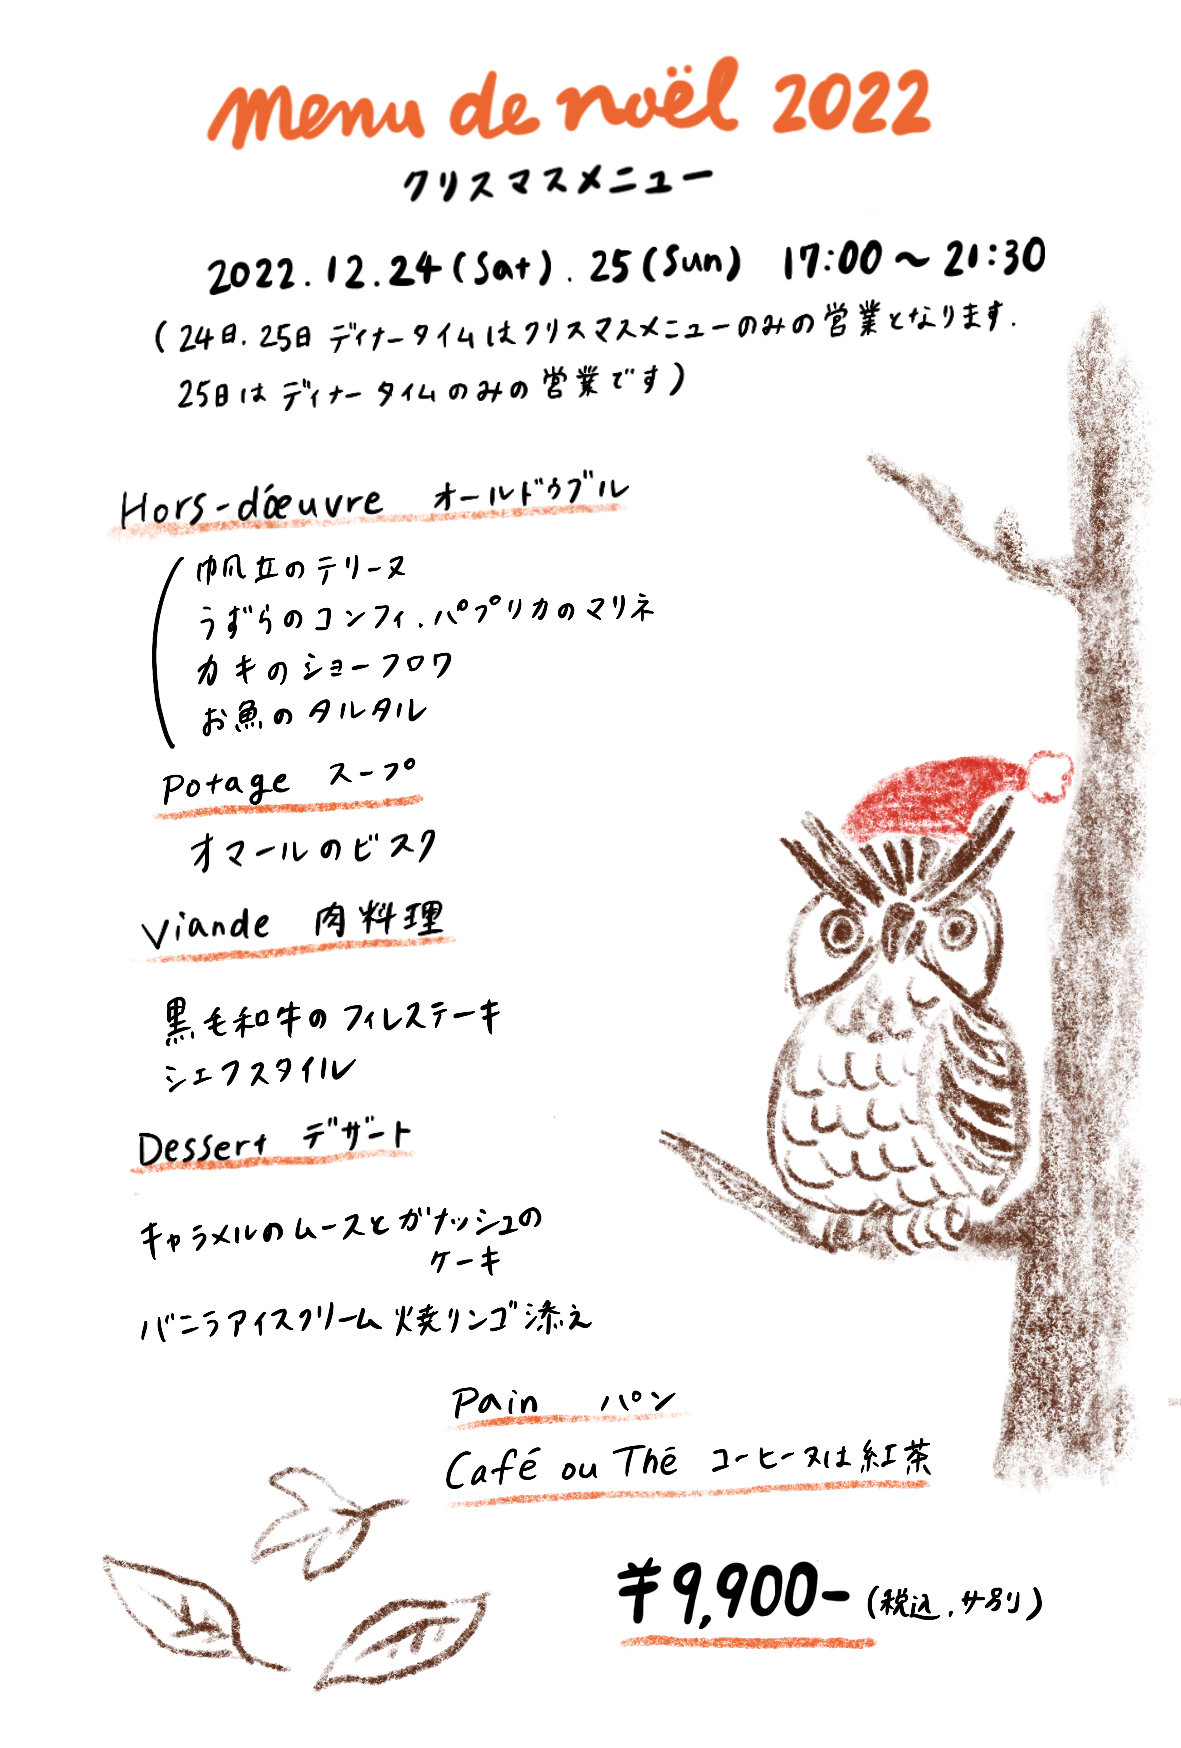 Menu de noël 2022
クリスマスメニュー
2022.12.24(Sat).25(Sun) 17:00～21:30
(24日.25日 ディナータイムはクリスマスメニューのみの営業となります.
25日はディナータイムのみの営業です)
Hors-d'œuvre オールドゥブル
帆立のテリーヌ
うずらのコンフィ.パプリカのマリネ
カキのショーフロワ
お魚のタルタル
Potage スープ
オマールのビスク
Viande 肉料理
黒毛和牛のフィレステーキ
シェフスタイル
Dessert デザート
キャラメルのムースとガナッシュの
ケーキ
バニラアイスクリーム 焼リンゴ添え
Pain パン
Café ou Thé コーヒー又は紅茶
¥9,900-(税込.サ別)